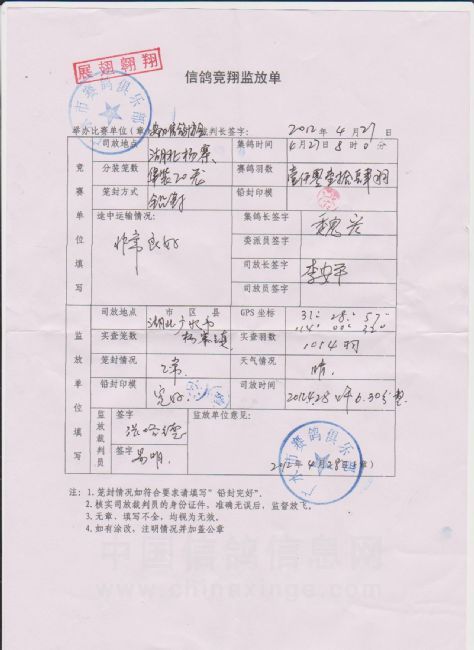 展翅翱翔
信鸽竞翔监放单
广水市赛鸽俱乐部
举办比赛单位(章) 裁判长签字: 2012年4月27日
竞赛单位填写
司放地点 湖北杨寨 集鸽时间 4月27日8时0分
分装笼数 赛鸽羽数
笼封方式 铅封 铅封印模
途中运输情况: 非常良好
集鸽长签字
委派员签字
司放长签字 李安平
司放员签字
监放单位填写
司放地点 市区县 湖北广水市 杨寨镇 GPS坐标 31:28:57
实查笼数 实查羽数 1014羽
笼封情况 正常 天气情况 晴
铅封印模 完好 司放时间 2012.4.28 6.30分整
监放裁判员
签字
签字 易明
监放单位意见:
2012年4月28日(章)
广水市赛鸽俱乐部
注: 1.笼封情况如符合要求请填写"铅封完好".
2.核实司放裁判员的身份证件, 准确无误后, 监督放飞。
3.无章, 填写不全, 均视为无效。
4.如有涂改, 注明情况并加盖公章
中国信鸽信息网
www.chinaxinge.com